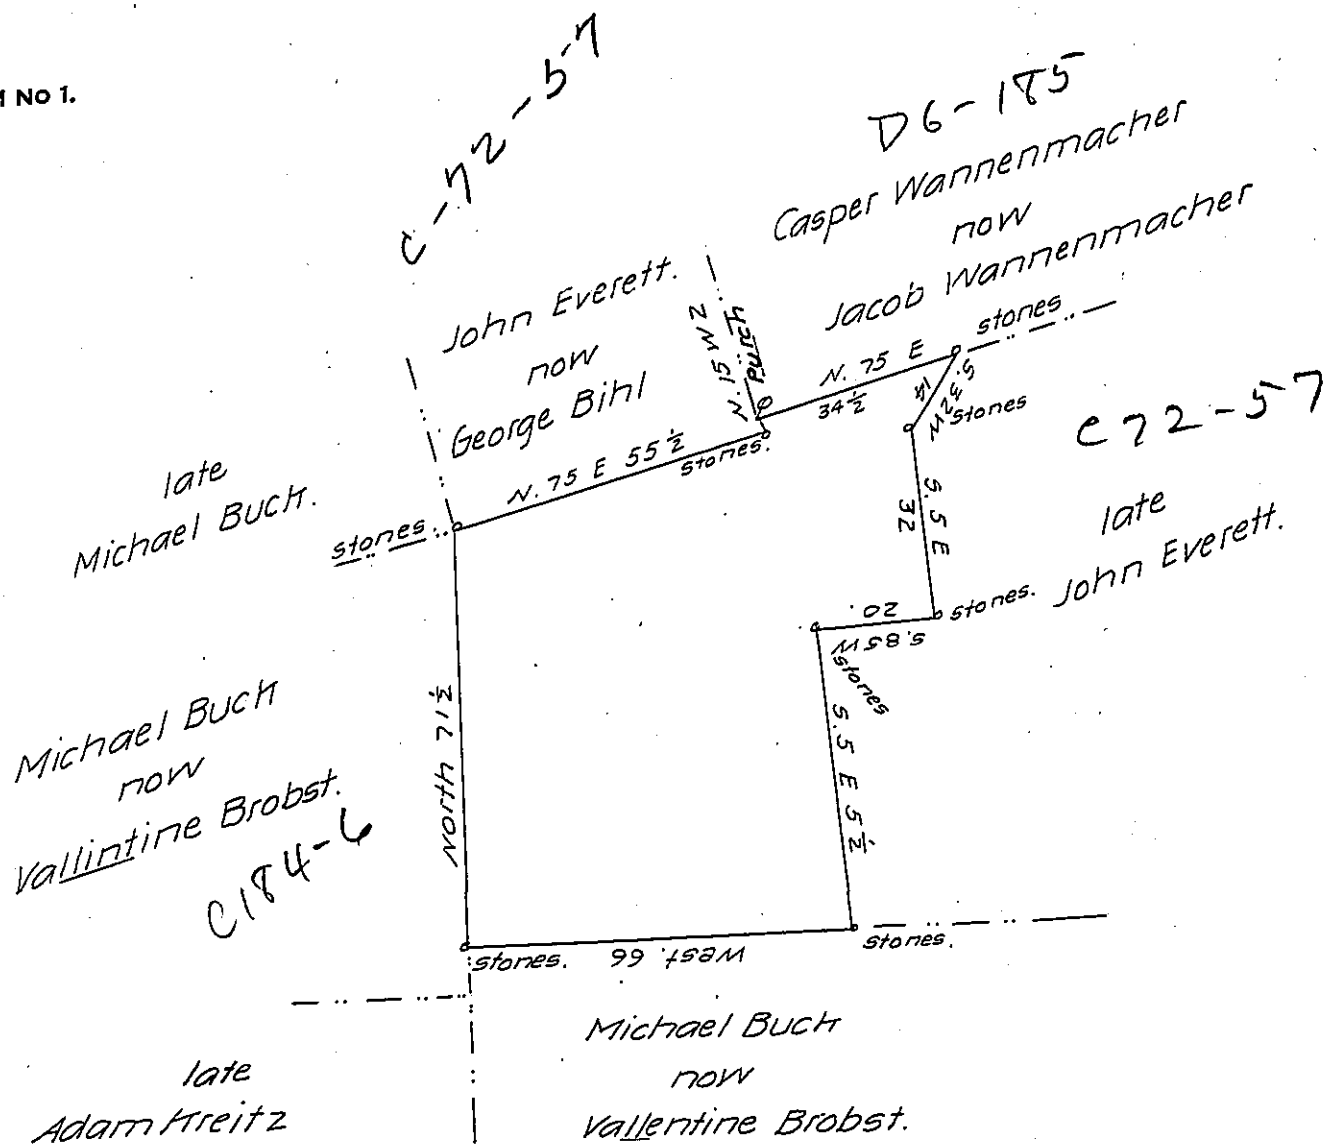 No 1.
C-72-57
D6-185
Casper Wannenmacher
now
Jacob Wannenmacher
John Everett.
now
George Bihl
N. 15 W 2
Purch.
N. 75 E
34½
stones
S. 32 W
14
stones
C72-57
late
John Everett.
late
Michael Buck.
stones.
N. 75 E 55½
stones.
S. 5 E
32
stones.
20.
S. 85 W
stones
Michael Buck
now
Vallintine Brobst.
C184-6
North 71½
S. 5 E 5½
stones. West. 66
stones.
late
Adam Kreitz
Michael Buck
now
Vallentine Brobst.